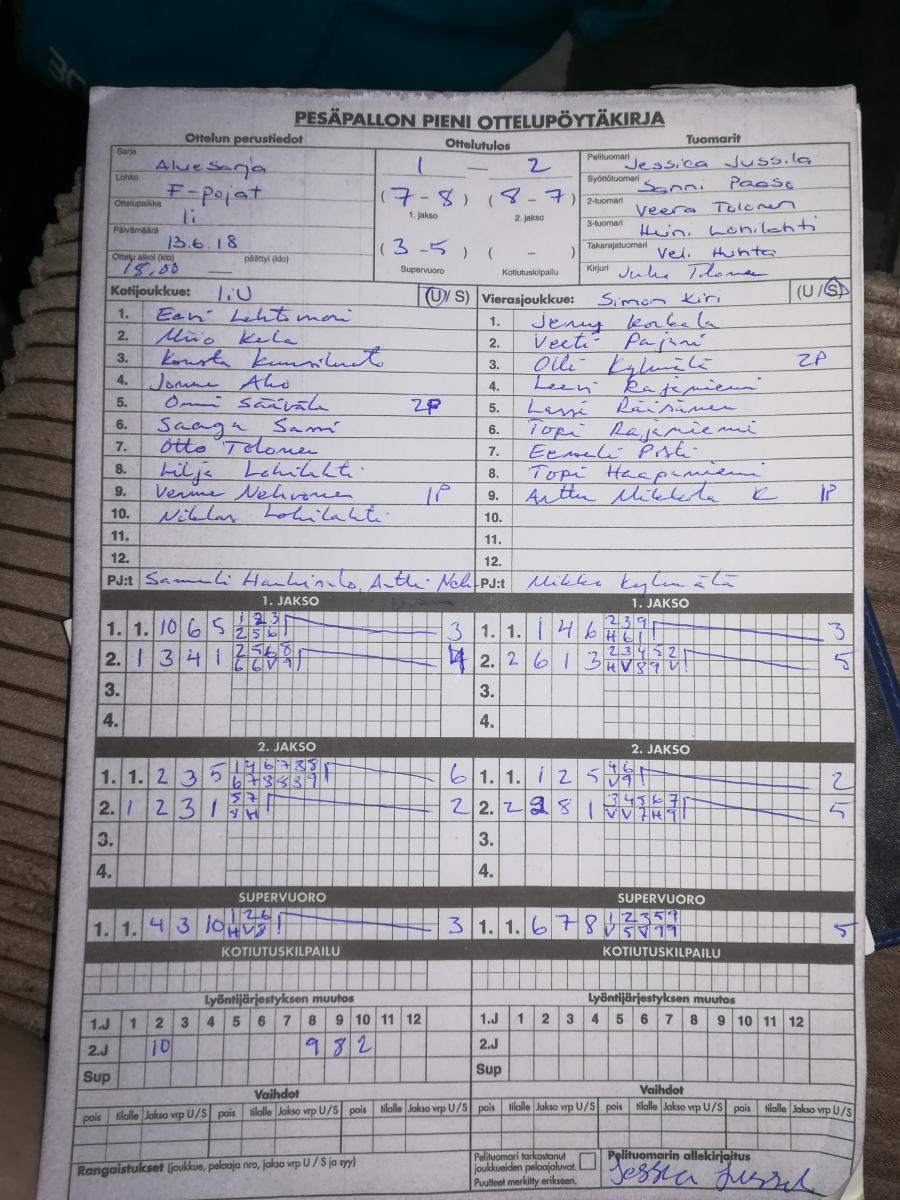 PESÄPALLON PIENI OTTELUPÖYTÄKIRJA
Ottelun perustiedot Ottelutulos Tuomarit
Sarja Aluesarja
Lohko F-pojat
Ottelupaikka Ii
Päivämäärä 13.6.18
Ottelu alkoi (klo) 18.00 — päättyi (klo)
1 — 2
(7 - 8) (8 - 7)
1. jakso 2. jakso
(3 - 5) ( - )
Supervuoro Kotiutuskilpailu
Pelituomari Jessica Jussila
Syöttötuomari Sanni Paaso
2-tuomari Veera Tolonen
3-tuomari
Takarajatuomari Huhta
Kirjuri Tolonen
Kotijoukkue: IiU (U / S)
1. Eevi
2. Kela
3. Konsta
4. Aho
5. Onni Säävälä 2P
6. Saaga Sassi
7. Otto Tolonen
8. Lilja Lohilahti
9. Nehvonen 1P
10. Niklas Lohilahti
11.
12.
PJ:t Samuli
Vierasjoukkue: Simon Kiri (U / S)
1. Jenny Korkala
2. Veeti Pajari
3. Olli Kylmälä 2P
4. Leevi Rajaniemi
5. Lassi Räisänen
6. Topi Rajaniemi
7. Eemeli
8. Topi Haapaniemi
9. Arttu Mikkola K 1P
10.
11.
12.
PJ:t Mikko Kylmälä
1. JAKSO 1. JAKSO
1. 1. 10 6 5 1 2 3 3
2 5 6
2. 1 3 4 1 2 5 6 8 4
6 6 V 9
3.
4.
1. 1. 1 4 6 2 3 9 3
H 6 1
2. 2 6 1 3 2 3 4 5 2 5
H V 8 9 V
3.
4.
2. JAKSO 2. JAKSO
1. 1. 2 3 5 1 4 6 7 8 8 6
6 7 8 8 3 9
2. 1 2 3 1 5 7 2
8 H
3.
4.
1. 1. 1 2 5 4 6 2
V 9
2. 2 8 1 3 4 5 6 7 5
V V 7 H 9
3.
4.
SUPERVUORO SUPERVUORO
1. 1. 4 3 10 1 2 6 3
H V 8
1. 1. 6 7 8 1 2 3 5 9 5
V 5 V 9 9
KOTIUTUSKILPAILU KOTIUTUSKILPAILU
Lyöntijärjestyksen muutos Lyöntijärjestyksen muutos
1.J 1 2 3 4 5 6 7 8 9 10 11 12 1.J 1 2 3 4 5 6 7 8 9 10 11 12
2.J 10 9 8 2 2.J
Sup Sup
Vaihdot Vaihdot
pois tilalle Jakso vrp U/S pois tilalle Jakso vrp U/S pois tilalle Jakso vrp U/S pois tilalle Jakso vrp U/S pois tilalle Jakso vrp U/S pois tilalle Jakso vrp U/S
Rangaistukset (joukkue, pelaaja nro, jakso vrp U / S ja syy)
Pelituomari tarkastanut
joukkueiden pelaajaluvat.
Puutteet merkitty erikseen.
Pelituomarin allekirjoitus
Jessica Jussila